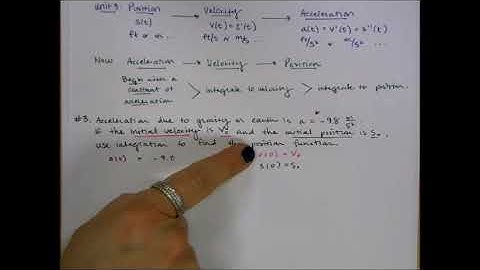 Unit 3 Position → Velocity → Acceleration
s(t) v(t) = s'(t) a(t) = v'(t) = s''(t)
ft or m ... ft/s or m/s ... ft/s² or m/s² ...
Now Acceleration → Velocity → Position
Begin with a constant of acceleration > integrate to velocity > integrate to position.
#3. Acceleration due to gravity on earth is a = -9.8 m/s²
If the initial velocity is V₀ and the initial position is S₀,
use integration to find the position function.
a(t) = -9.8 v(0) = V₀
s(0) = S₀